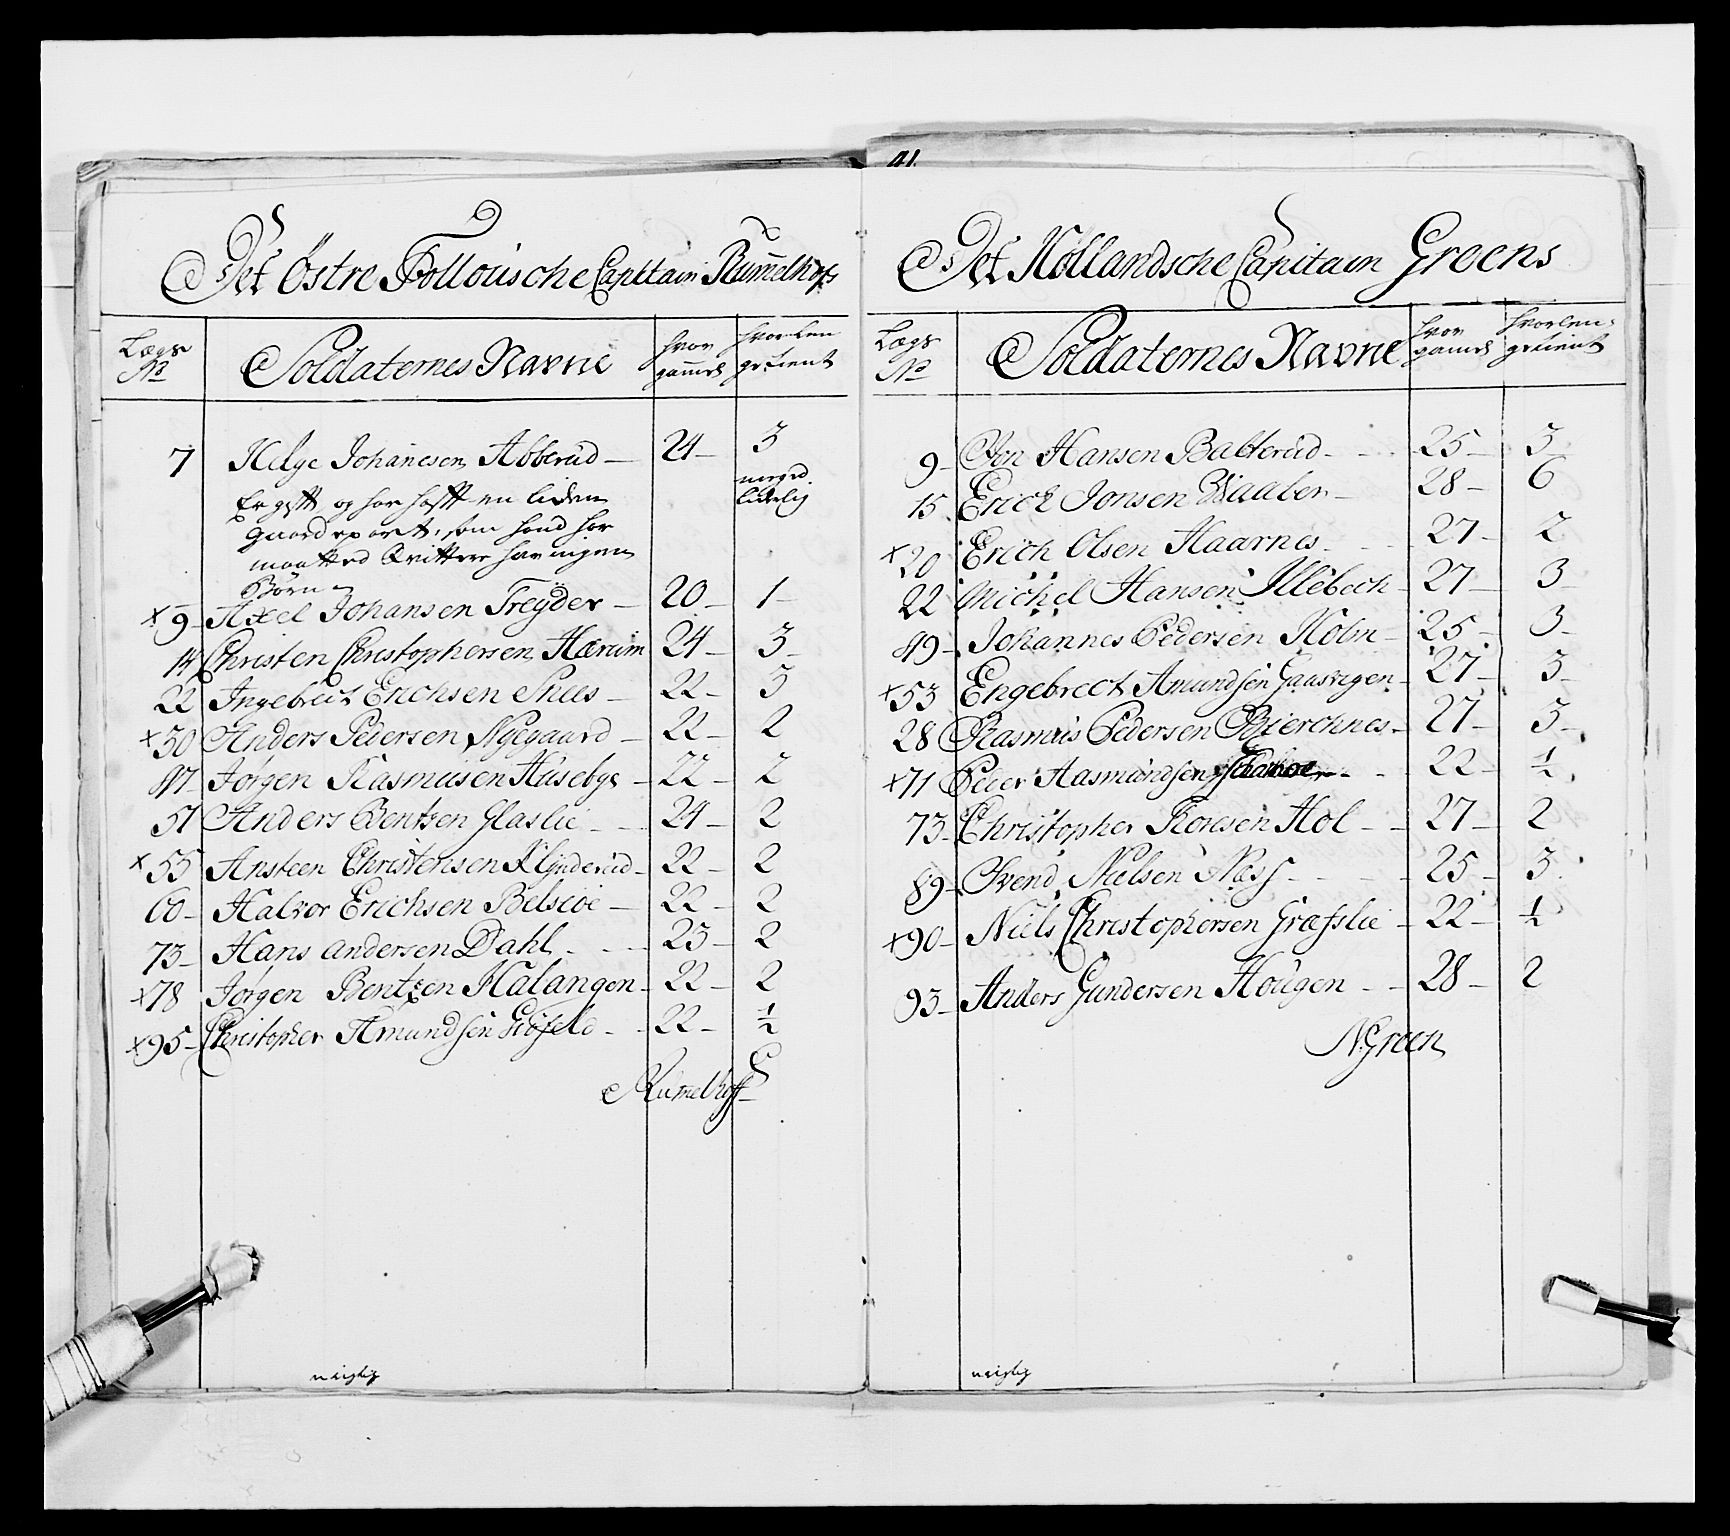 41.
Det Østre Follouische Capitain Rummelhofs
Lægs No
Soldaternes Navne
hvor gamel
hvorlen ge tient
7 Helge Johanesen Abberud — 24 — 3
Er gift og har haft en liden
gaard part, som hand har
maatted quittere har ingen
Børn
x 9 — Axel Johansen Treyder — 20 — 1 —
14 Christen Christophersen Hærum 24 — 3 —
22 Ingebret Erichsen Snees — 22 — 3
x 30 Anders Pedersen Nygaard — 22 — 2
47 Jørgen Rasmusen Husebye — 22 — 2
51 Anders Bentsen Glaslie — 24 — 2
x 55 Ansteen Christensen Klynderud — 22 — 2
60 — Halvor Erichsen Bølsøe — 22 — 2
73 — Hans Andersen Dahl — 23 — 2
x 78 Jørgen Bentzen Halangen — 22 — 2
x 95 — Christopher Amundsen — 22 — ½
Rumelhoff
Det Høllandsche Capitain Groens
Lægs No
Soldaternes Navne
hvor gamel
hvorlen ge tient
9 — Jon Hansen Balterud — 25 — 3
15 Erich Jonsen — 28 — 6
x 20 Erich Olsen Haarnes — 27 — 2
22 Michel Hansen Illebech — 27 — 3
49 — Johannes Pedersen Holm — 25 — 3 —
x 53 Engebrect Amundsen Gaasvigen — 27 — 3 —
28 Rasmus Pedersen Bierchnes — 27 — 3 —
x 71 Peder Aasmundsen — 22 — ½
73 — Christopher Toresen Hol — 27 — 2
89 — Svend Nielsen Næss — 25 — 3
x 90 — Niels Christophersen Græsslie — 22 — ½
93 — Anders Gundersen Hougen — 28 — 2
N. Groen